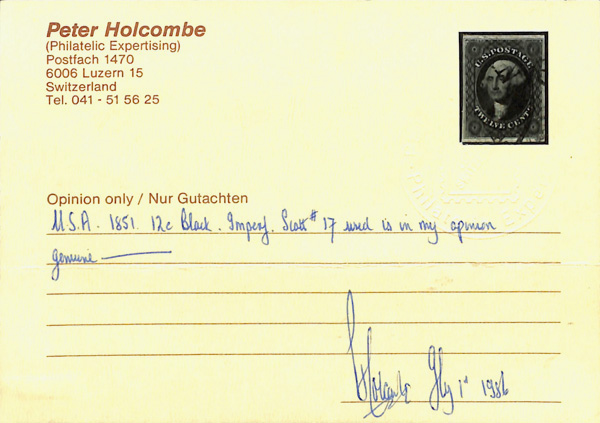 Peter Holcombe
(Philatelic Expertising)
Postfach 1470
6006 Luzern 15
Switzerland
Tel. 041 - 51 56 25
U.S. POSTAGE
TWELVE CENTS
Opinion only / Nur Gutachten
U.S.A. 1851. 12c Black. Imperf. Scott # 17 used is in my opinion
genuine
Holcombe July 1st 1986